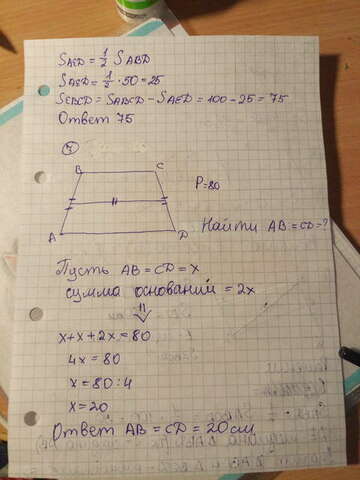 S AED = 1/2 S ABD
S AED = 1/2 · 50 = 25
S EBCD = S ABCD − S AED = 100 − 25 = 75
Ответ 75
4
B C
P=80
A D
Найти AB = CD = ?
Пусть AB = CD = x
сумма оснований = 2x
x + x + 2x = 80
4x = 80
x = 80 : 4
x = 20
Ответ AB = CD = 20 см